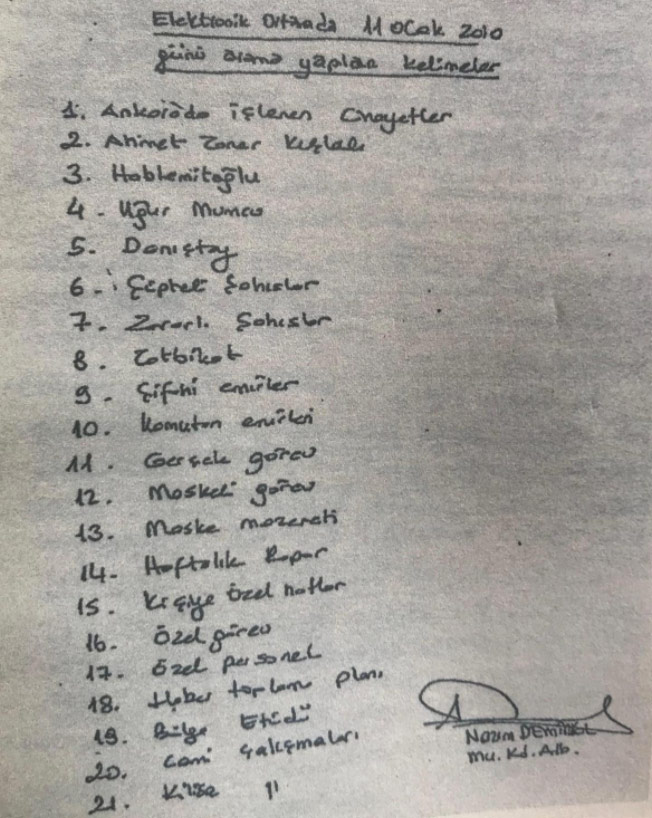 Elektronik Ortamda 11 Ocak 2010
günü arama yapılan kelimeler
1. Ankara'da işlenen Cinayetler
2. Ahmet Taner Kışlalı
3. Hablemitoğlu
4 - Uğur Mumcu
5. Danıştay
6 - Şüpheli Şahıslar
7. Zararlı Şahıslar
8. Tatbikat
9. Şifahi emirler
10. Komutan emirleri
11. Gerçek görev
12. Maskeli görev
13. Maske mazereti
14- Haftalık Rapor
15. Kişiye Özel notlar
16. Özel görev
17. Özel personel
18. Haber toplama planı
19. Bölge Etüdü
20. Cami çalışmaları
21. Kilise "
Nazım DEMİREL
Mu. Kd. Alb.